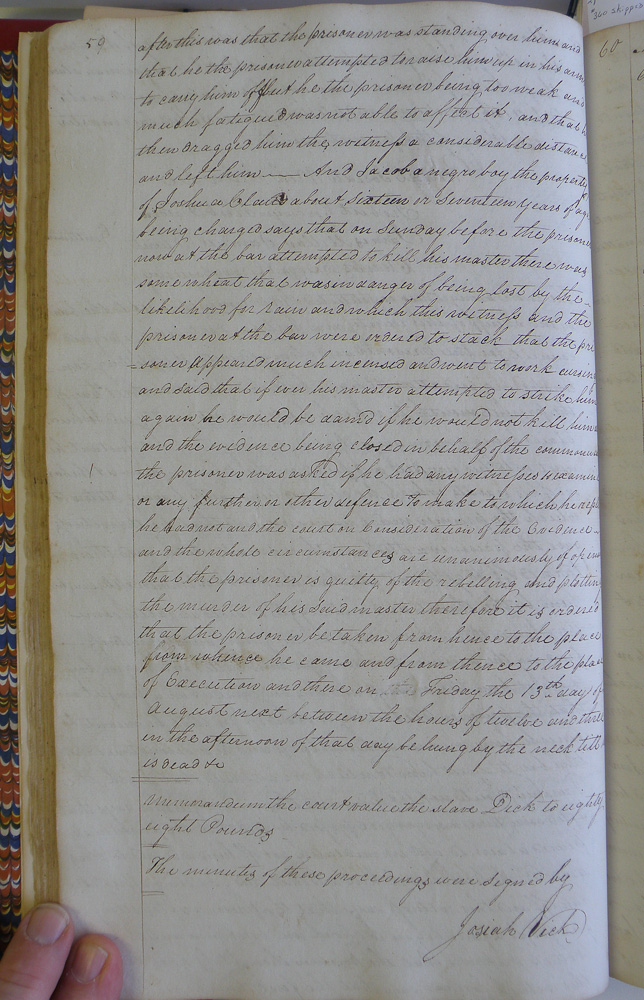 59
after this was that the prisoner was standing over him and
that he the prisoner attempted to raise him up in his arms
to carry him off but he the prisoner being too weak and
much fatigued was not able to affect it, and that he
then dragged him the witness a considerable distance
and left him — And Jacob a negro boy the property
of Joshua about sixteen or seventeen years of age
being charged says that on Sunday before the prisoner
now at the bar attempted to kill his master there was
some wheat that was in danger of being lost by the
likelihood for rain and which this witness and the
prisoner at the bar were ordered to stack that the pri
soner appeared much incensed and went to work cursing
and said that if ever his master attempted to strike him
again he would be damd if he would not kill him
and the evidence being closed in behalf of the commonwe
the prisoner was asked if he had any witnesses to examine
or any further or other defence to make to which he repli
he had not and the court on Consideration of the Evidence
and the whole circumstances are unanimously of opin
that the prisoner is guilty of the rebelling and plotting
the murder of his said master therefore it is ordered
that the prisoner be taken from hence to the place
from whence he came and from thence to the place
of Execution and there on Friday the 13th day of
August next between the hours of twelve and three
in the afternoon of that day be hung by the neck till
is dead &c
Memorandum the court value the slave Dick to eighty
eight Pounds
The minutes of these proceedings were signed by
Josiah Vick
60